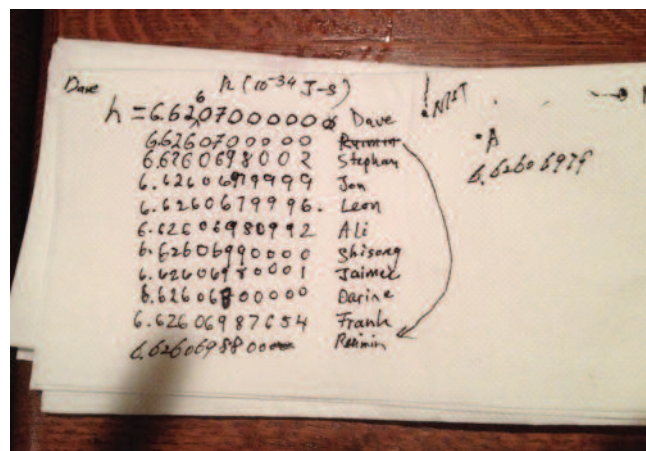 Dave h (10-34 J-s)
h = 6.62607000000 Dave
6.6260700000 Ruimin
6.6260698002 Stephan
6.6260679999 Jon
6.6260679996. Leon
6.6260698099 2 Ali
6.6260690000 Shisong
6.62606980001 Jaimec
6.6260680000 Darine
6.62606987654 Frank
6.62606988000 Ruimin
! NIST
• A
6.62606979